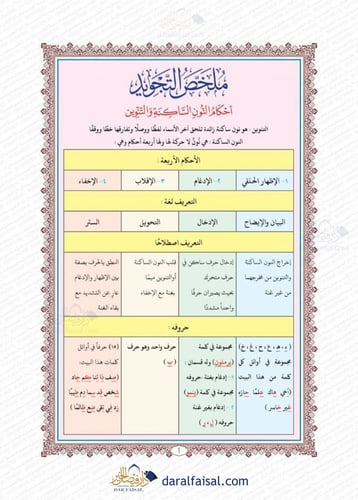 ملخص التجويد
أحكام النون الساكنة والتنوين
التنوين : هو نون ساكنة زائدة تلحق آخر الأسماء لفظًا ووصلًا وتفارقها خطًا ووقفًا
النون الساكنة : هي نون لا حركة لها ولها أربعة أحكام وهي :
الأحكام الأربعة :
١- الإظهار الحلقي
٢- الإدغام
٣- الإقلاب
٤- الإخفاء
التعريف لغة :
البيان والإيضاح
الإدخال
التحويل
الستر
التعريف اصطلاحًا
إخراج النون الساكنة
والتنوين من مخرجهما
من غير غنة
إدخال حرف ساكن في
حرف متحرك
بحيث يصيران حرفًا
واحدًا مشددًا
قلب النون الساكنة
أو التنوين ميمًا
بغنة مع الإخفاء
النطق بالحرف بصفة
بين الإظهار والإدغام
عارٍ عن التشديد مع
بقاء الغنة
حروفه :
( ء ، هـ ، ع ، ح ، غ ، خ )
مجموعة في أوائل كل
كلمة من هذا البيت
(أخي هاك علمًا حازه
غير خاسر)
مجموعة في كلمة
(يرملون) وله قسمان :
١- إدغام بغنة حروفه
مجموعة في كلمة (ينمو)
٢- إدغام بغير غنة
حروفه (ل، ر)
حرف واحد وهو حرف
(ب)
(١٥) حرفاً في أوائل
كلمات هذا البيت:
(صف ذا ثنا كم جاد
شخص قد سما دم طيبًا
زد في تقى ضع ظالمًا)
١
دار فيصل الخير
DAR FAISAL
daralfaisal.com